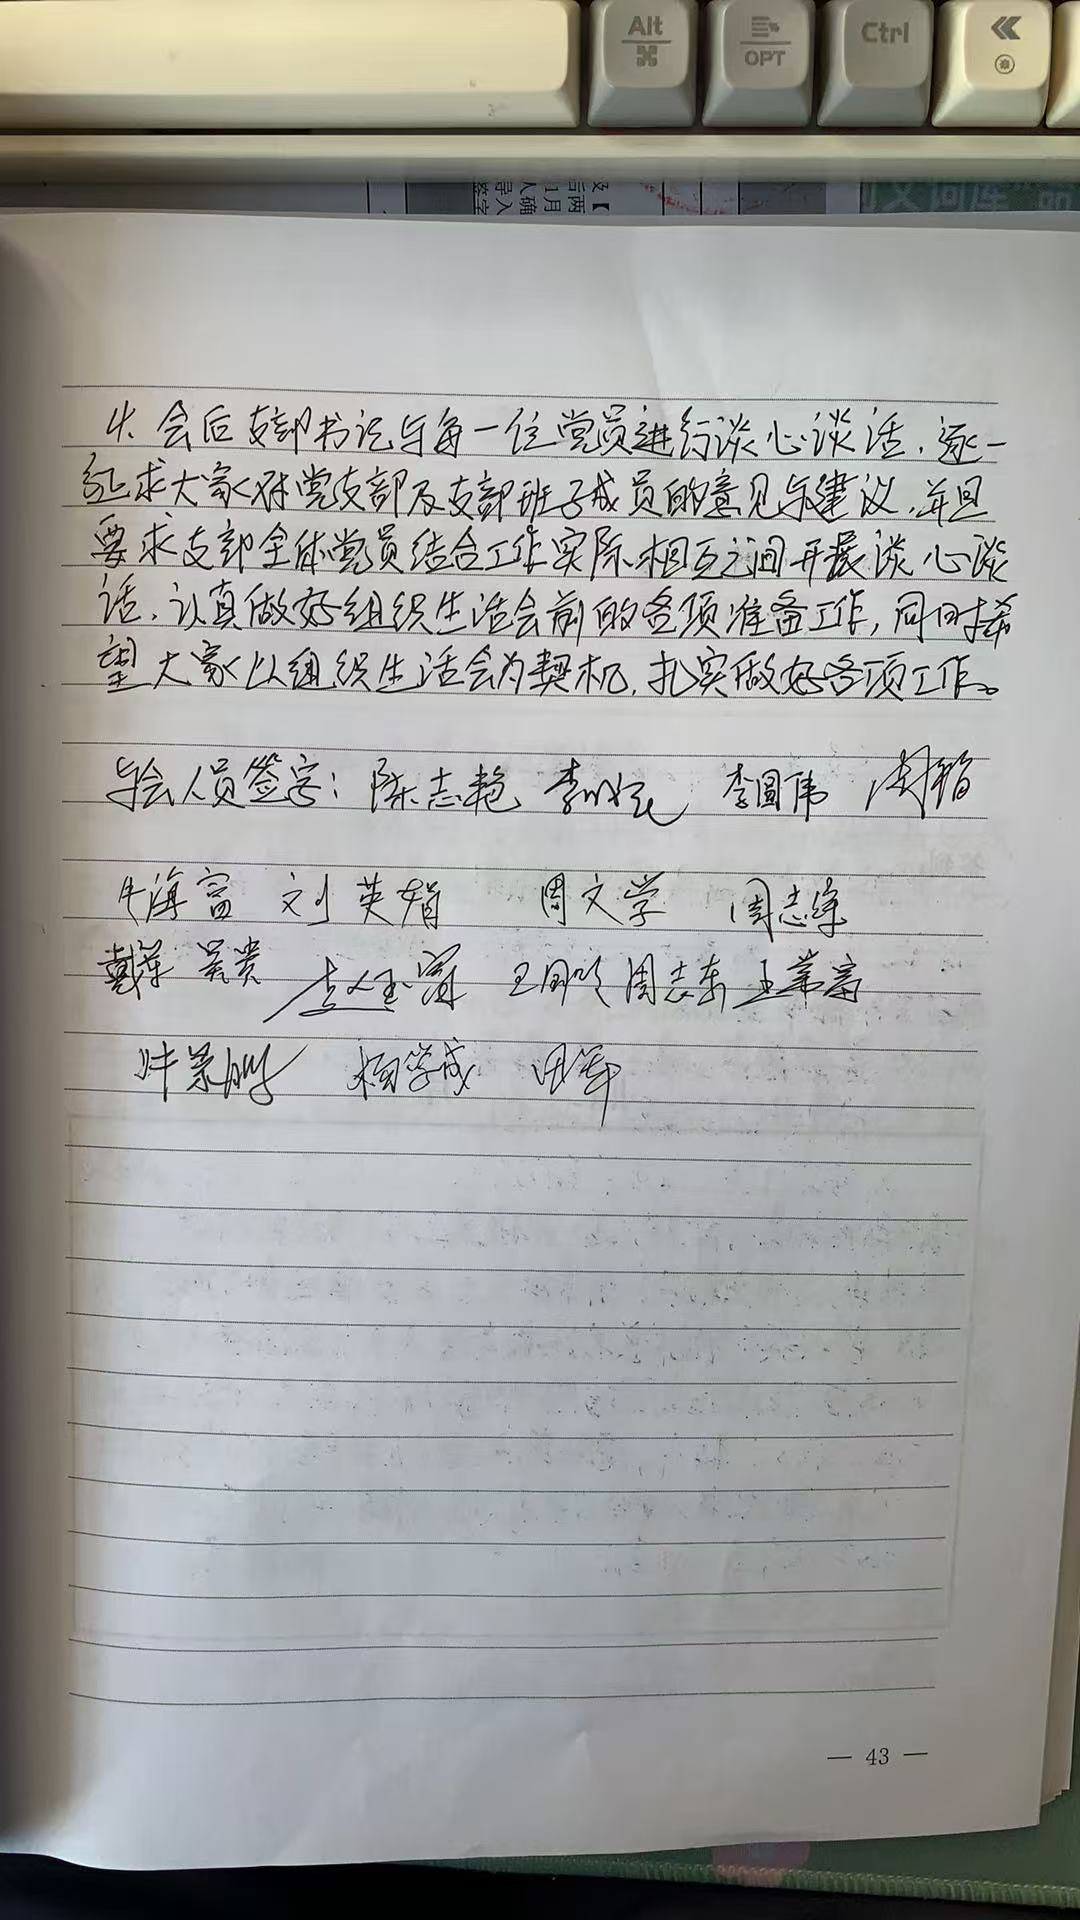 Alt
OPT
Ctrl
4、会后支部书记与每一位党员进行谈心谈话，逐一
征求大家对党支部及支部班子成员的意见与建议，并且
要求支部全体党员结合工作实际相互之间开展谈心谈
话，认真做好组织生活会前的各项准备工作，同时希
望大家以组织生活会为契机，扎实做好各项工作。
与会人员签字：陈志艳 李圆伟
牛海富 刘英娟 周文学
戴萍 吴贵 周志东
杨学成 田军
— 43 —